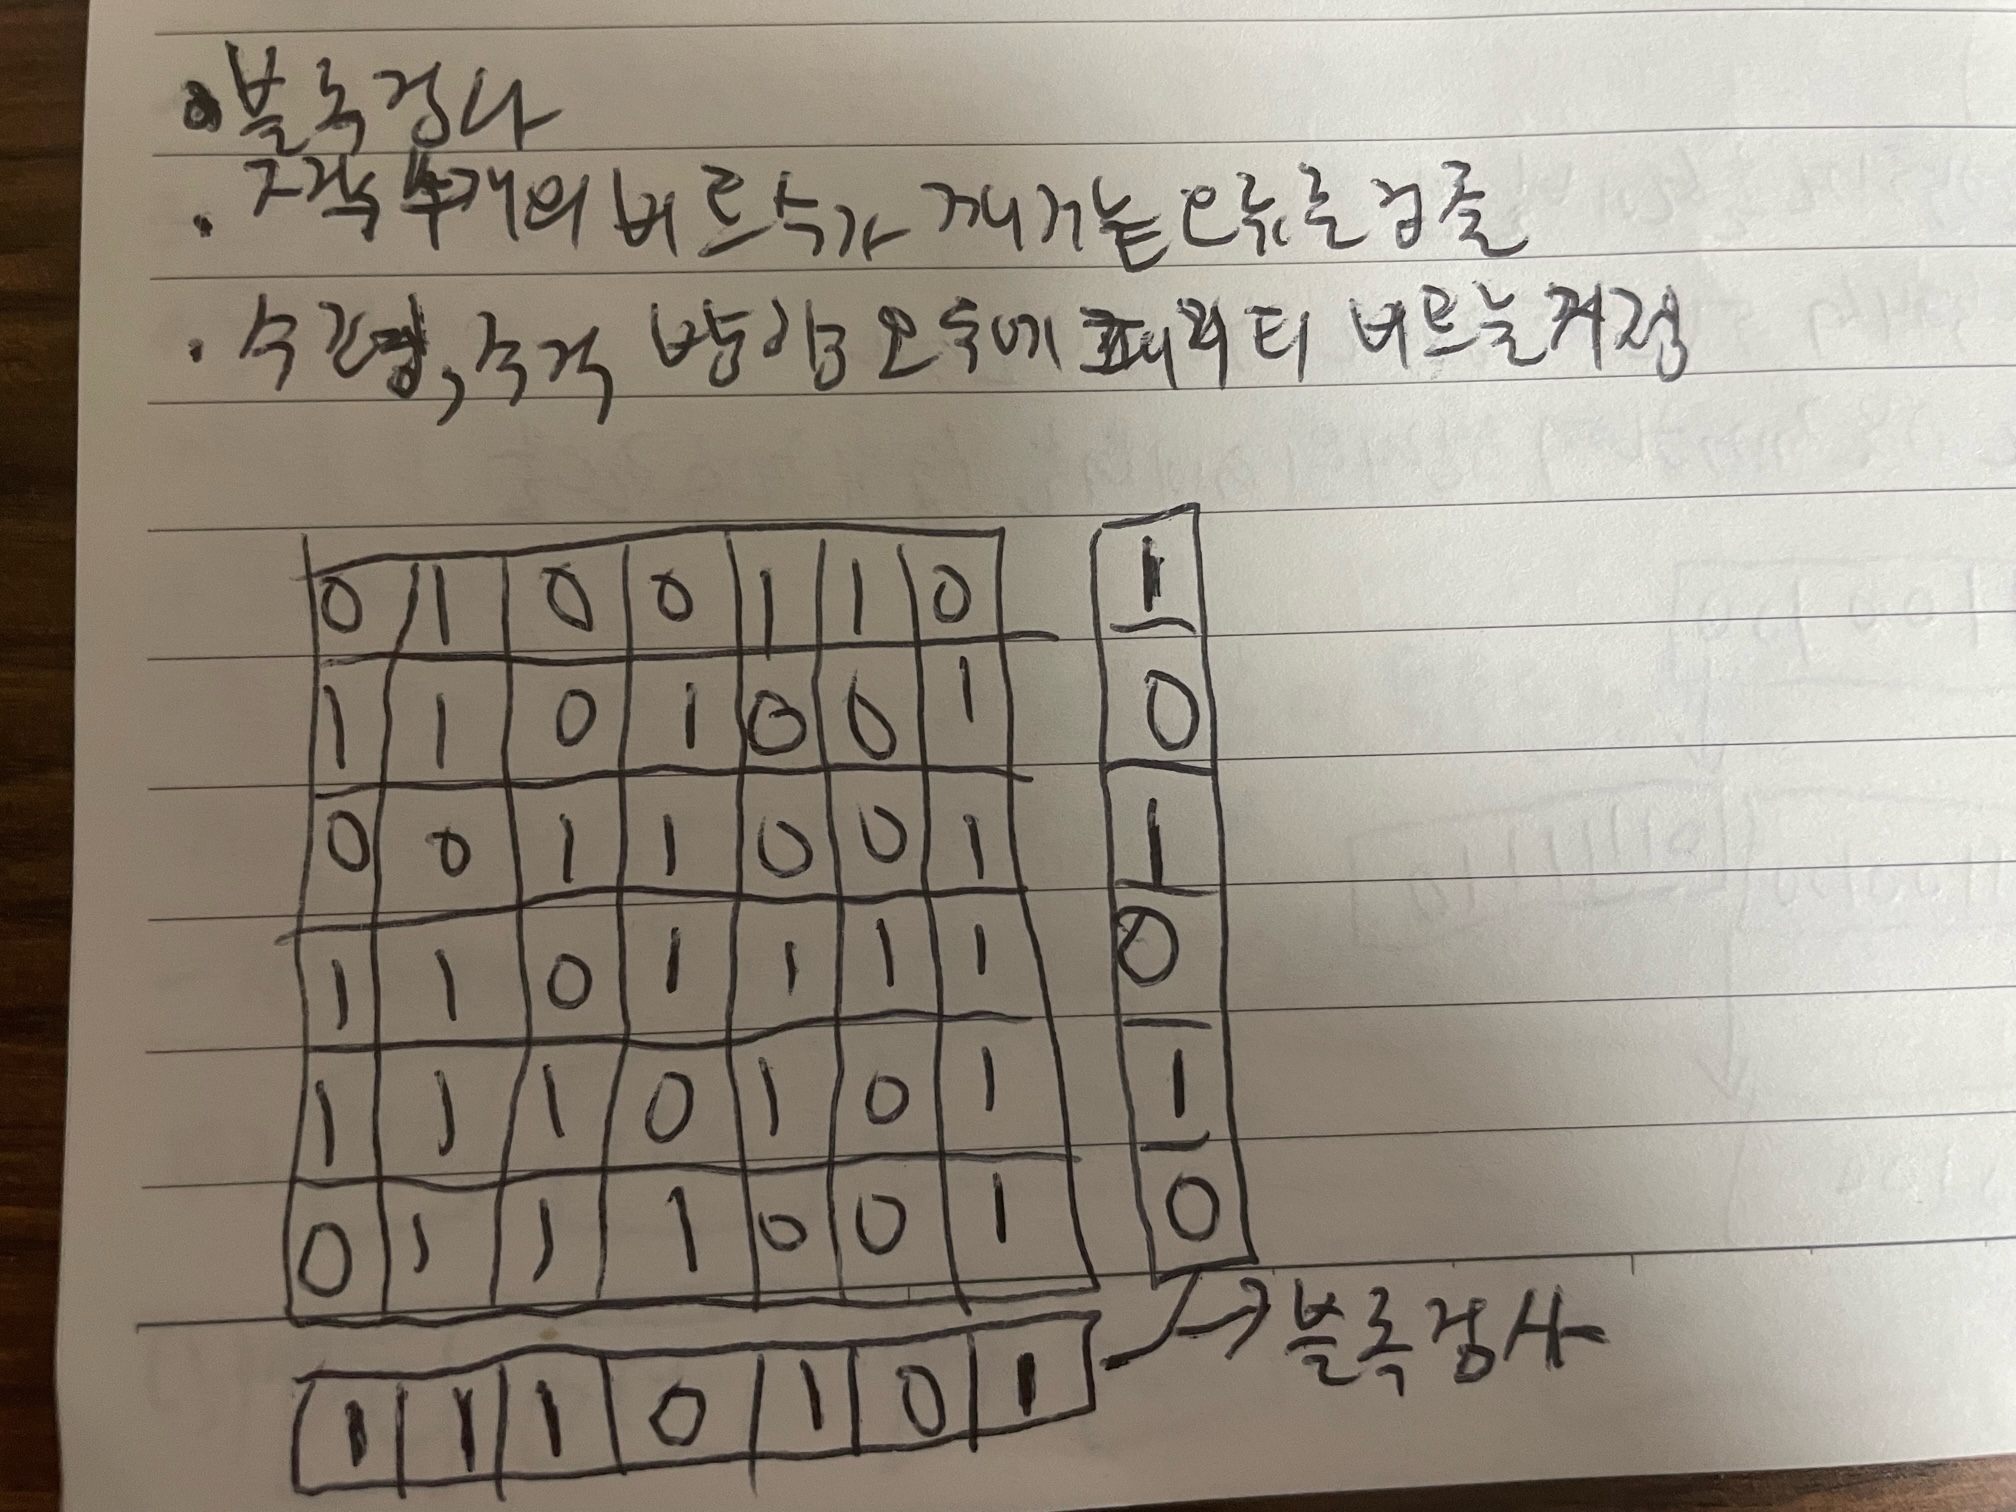 · 블록검사
· 짝수개의 비트수가 깨지는 오류를 검출
· 수평, 수직 방향 모두에 패리티 비트를 지정
0 1 0 0 1 1 0 1
1 1 0 1 0 0 1 0
0 0 1 1 0 0 1 1
1 1 0 1 1 1 1 0
1 1 1 0 1 0 1 1
0 1 1 1 0 0 1 0
1 1 1 0 1 0 1
→ 블록검사